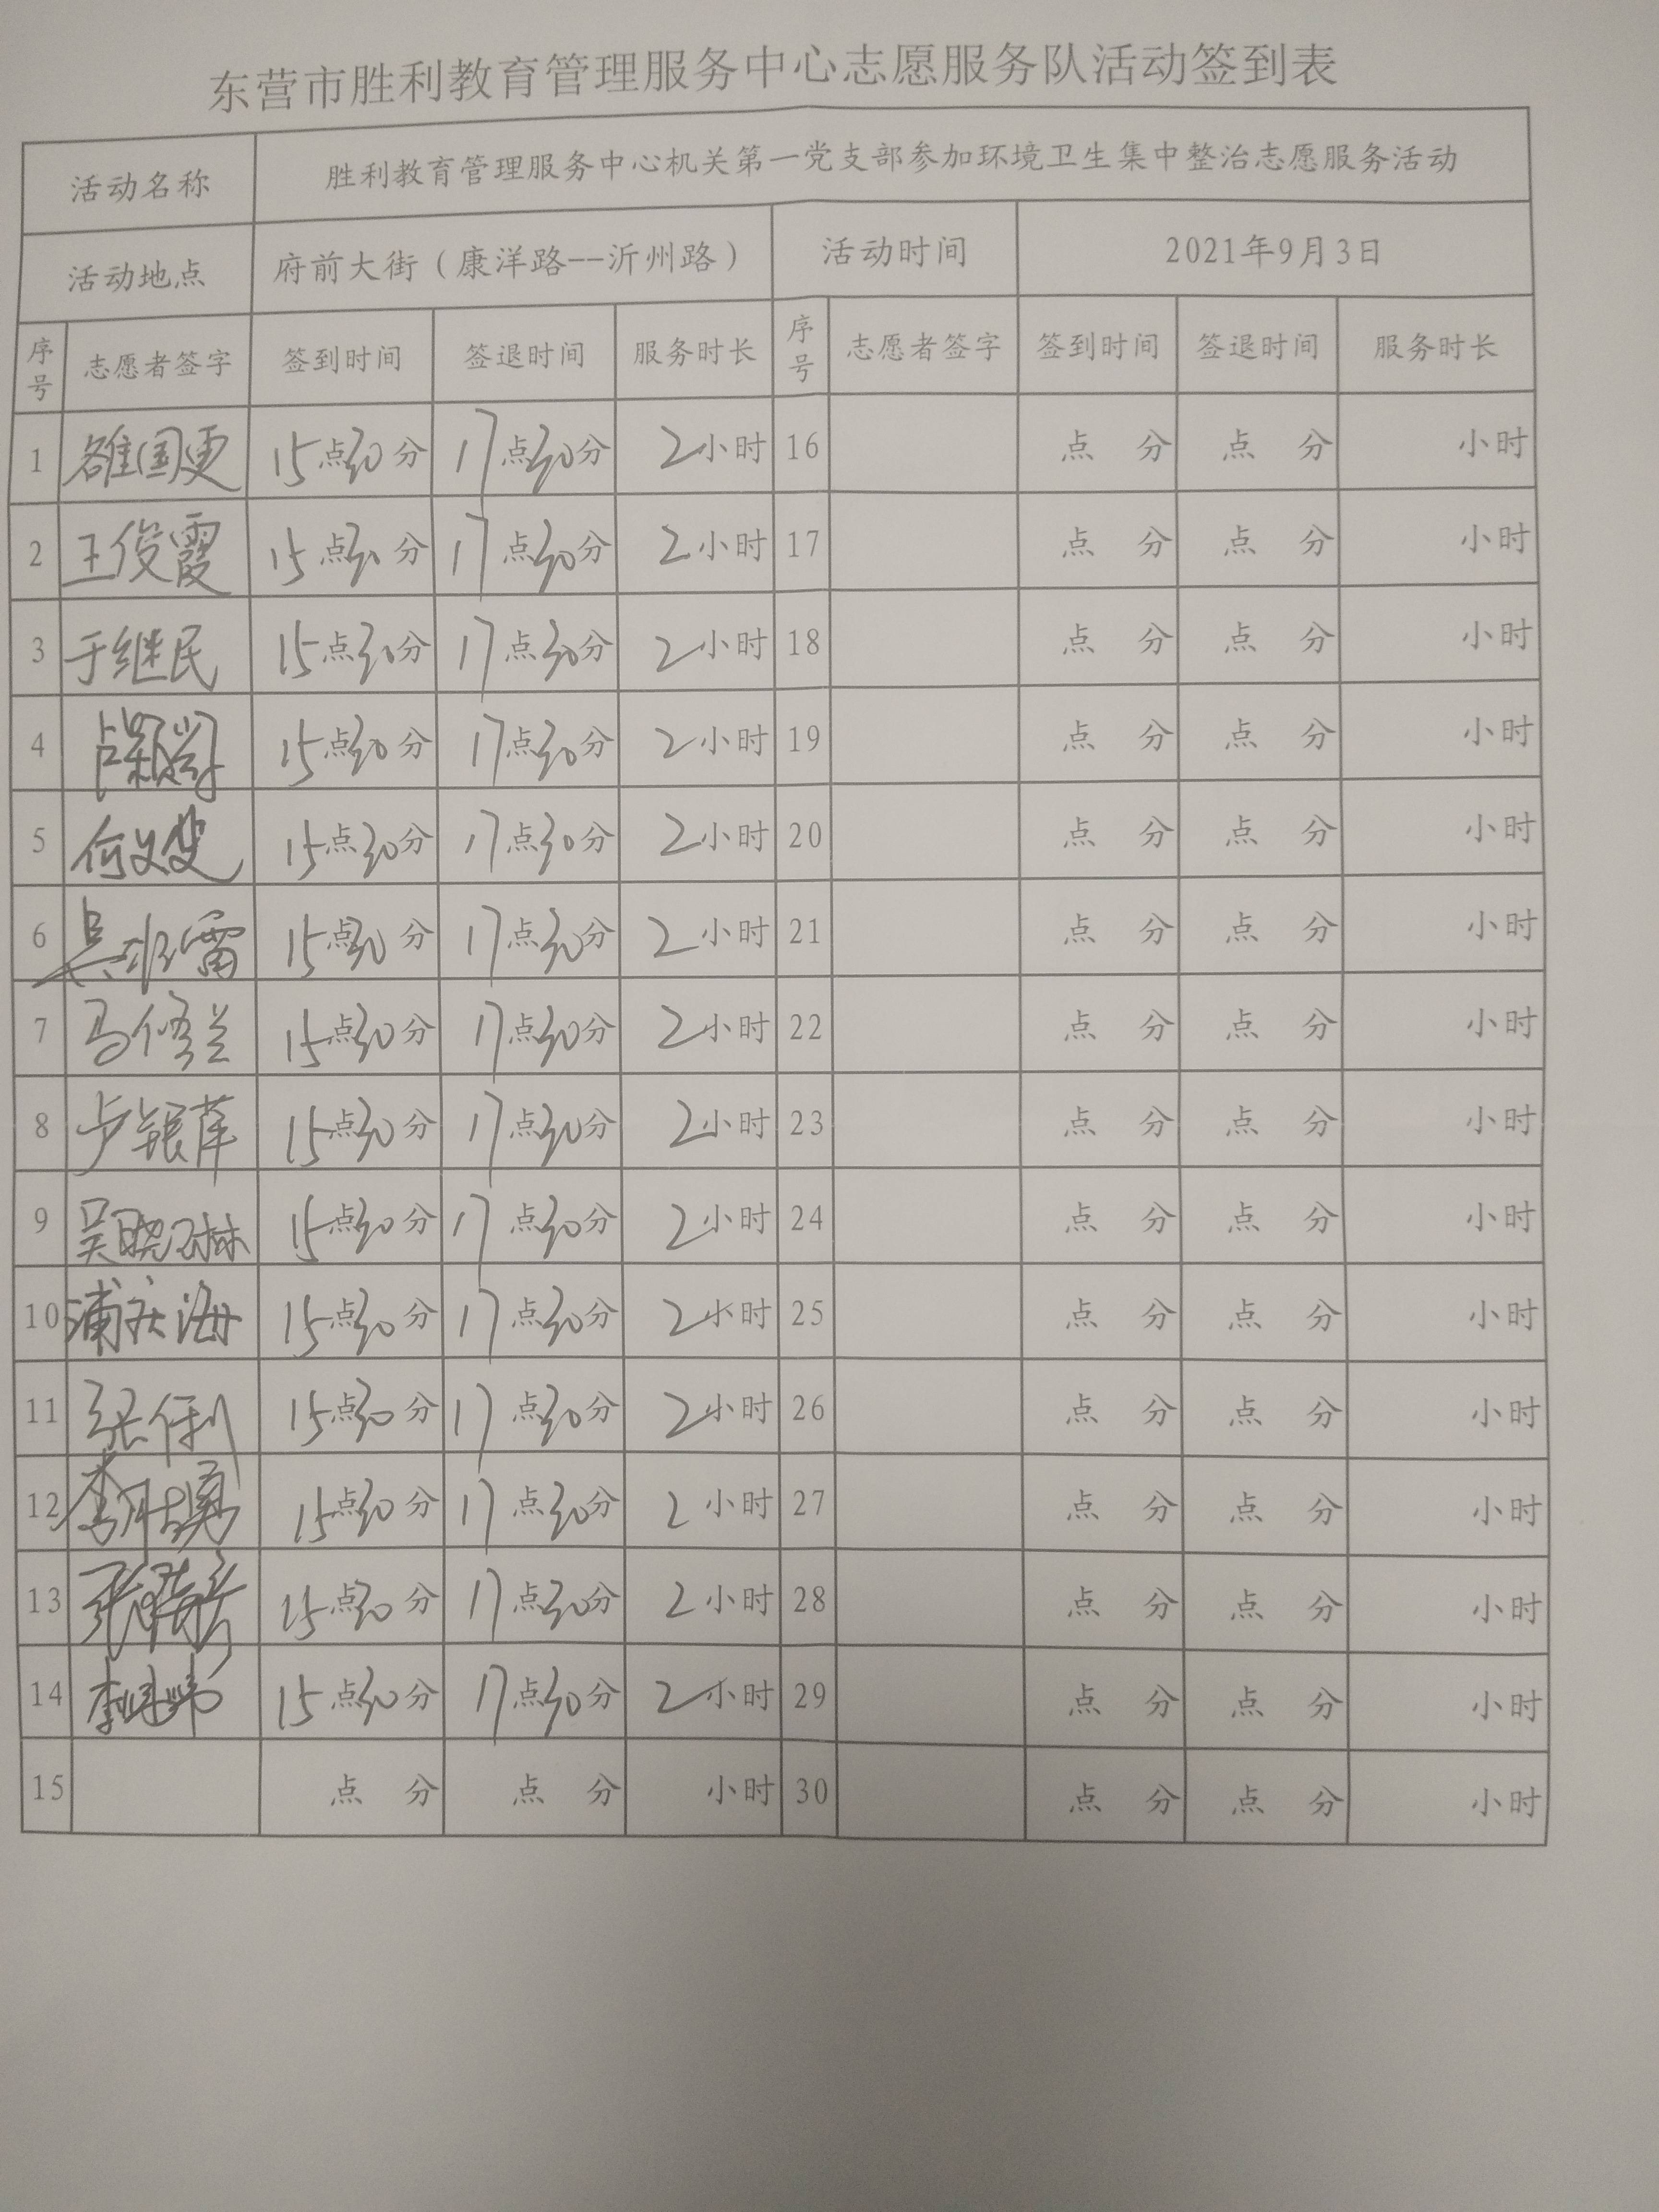 东营市胜利教育管理服务中心志愿服务队活动签到表
活动名称 胜利教育管理服务中心机关第一党支部参加环境卫生集中整治志愿服务活动
活动地点 府前大街（康洋路--沂州路） 活动时间 2021年9月3日
序号 志愿者签字 签到时间 签退时间 服务时长 序号 志愿者签字 签到时间 签退时间 服务时长
1 15点30分 17点30分 2小时 16 点 分 点 分 小时
2 王俊霞 15点30分 17点30分 2小时 17 点 分 点 分 小时
3 于继民 15点30分 17点30分 2小时 18 点 分 点 分 小时
4 15点30分 17点30分 2小时 19 点 分 点 分 小时
5 15点30分 17点30分 2小时 20 点 分 点 分 小时
6 15点30分 17点30分 2小时 21 点 分 点 分 小时
7 马修兰 15点30分 17点30分 2小时 22 点 分 点 分 小时
8 卢银萍 15点30分 17点30分 2小时 23 点 分 点 分 小时
9 吴晓琳 15点30分 17点30分 2小时 24 点 分 点 分 小时
10 15点30分 17点30分 2小时 25 点 分 点 分 小时
11 张俐 15点30分 17点30分 2小时 26 点 分 点 分 小时
12 15点30分 17点30分 2小时 27 点 分 点 分 小时
13 15点30分 17点30分 2小时 28 点 分 点 分 小时
14 15点30分 17点30分 2小时 29 点 分 点 分 小时
15 点 分 点 分 小时 30 点 分 点 分 小时